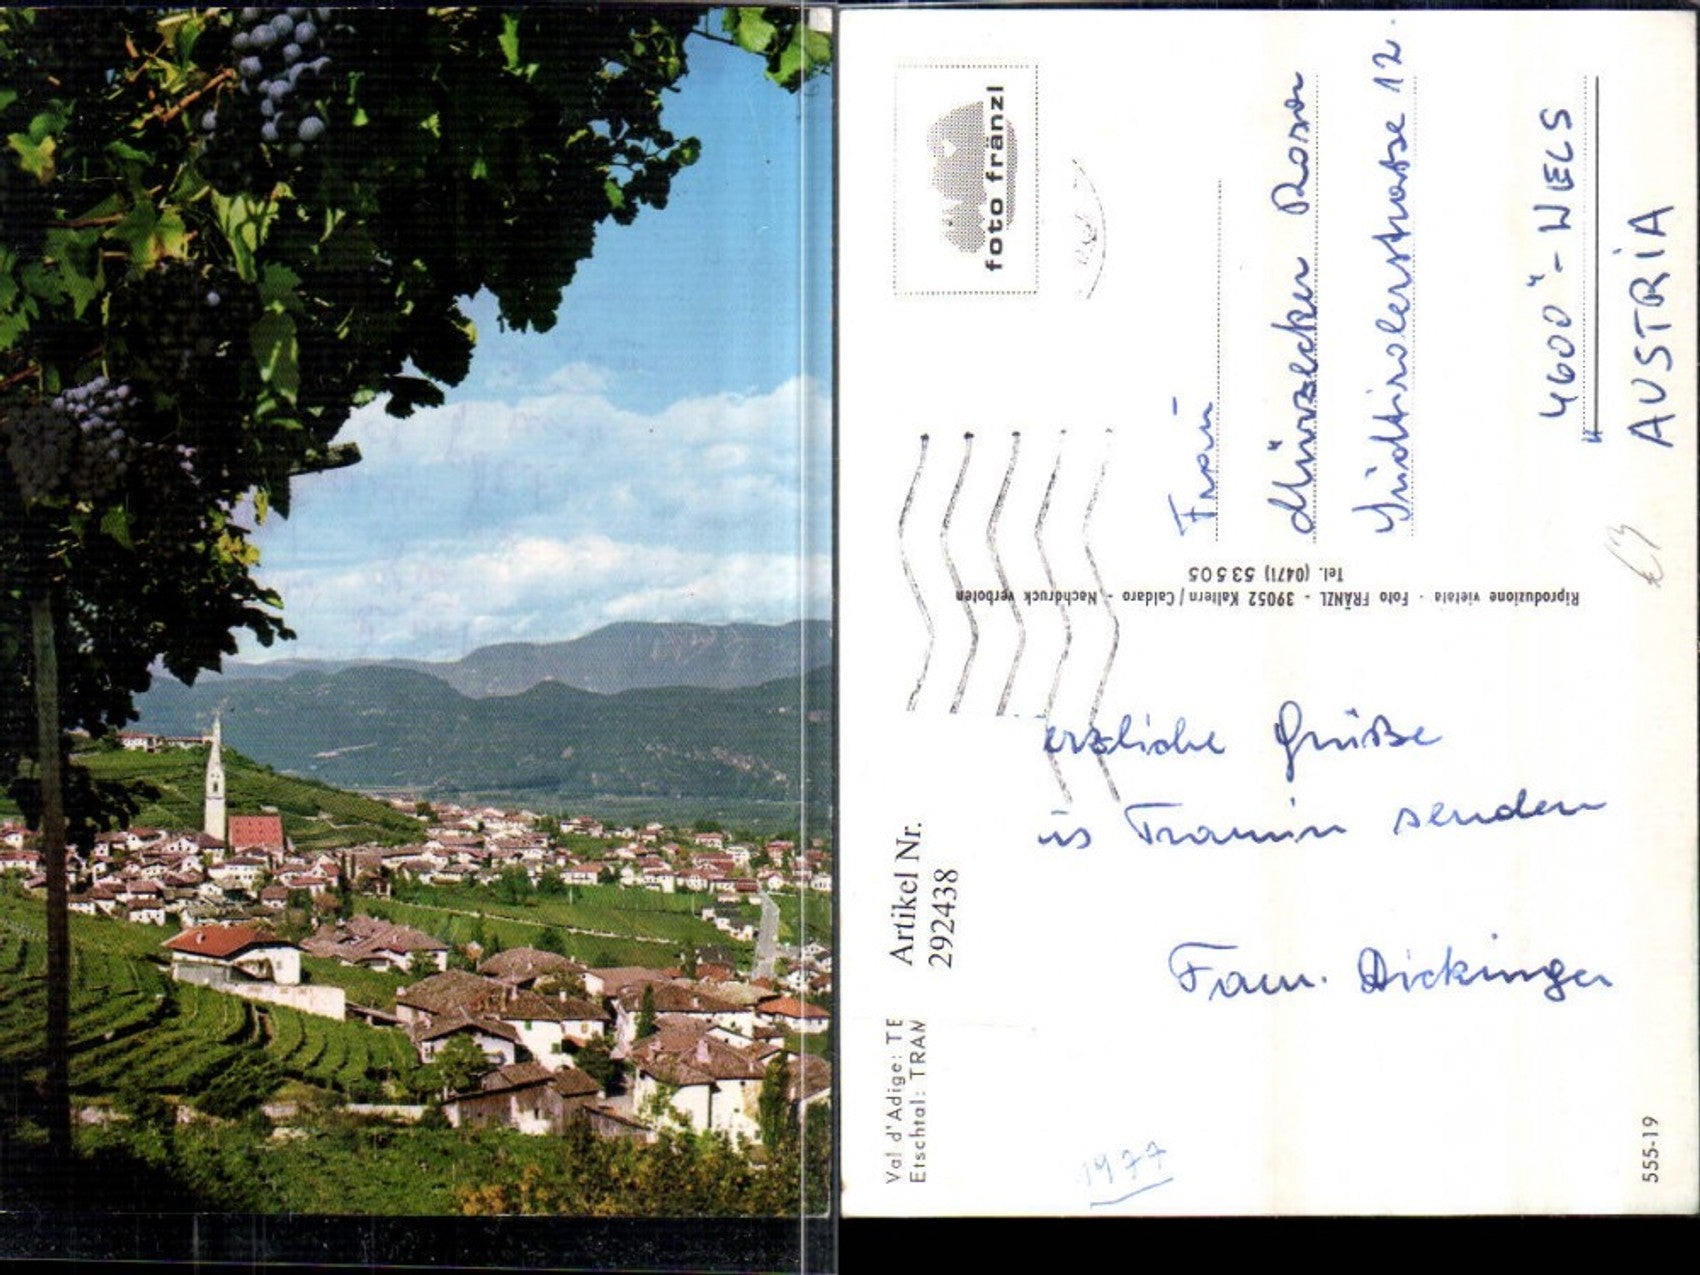 Val d'Adige: TE
Etschtal: TRAM
Artikel Nr.
292438
erzliche Grüße
us Tramin senden
Fam. Dickinger
1977
555-19
Riproduzione vietata - Foto FRÄNZL - 39052 Kaltern / Caldaro - Nachdruck verboten
Tel. (0471) 53505
foto fränzl
Münzecker Rosa
Südtirolerstraße 12.
4600 - WELS
AUSTRIA